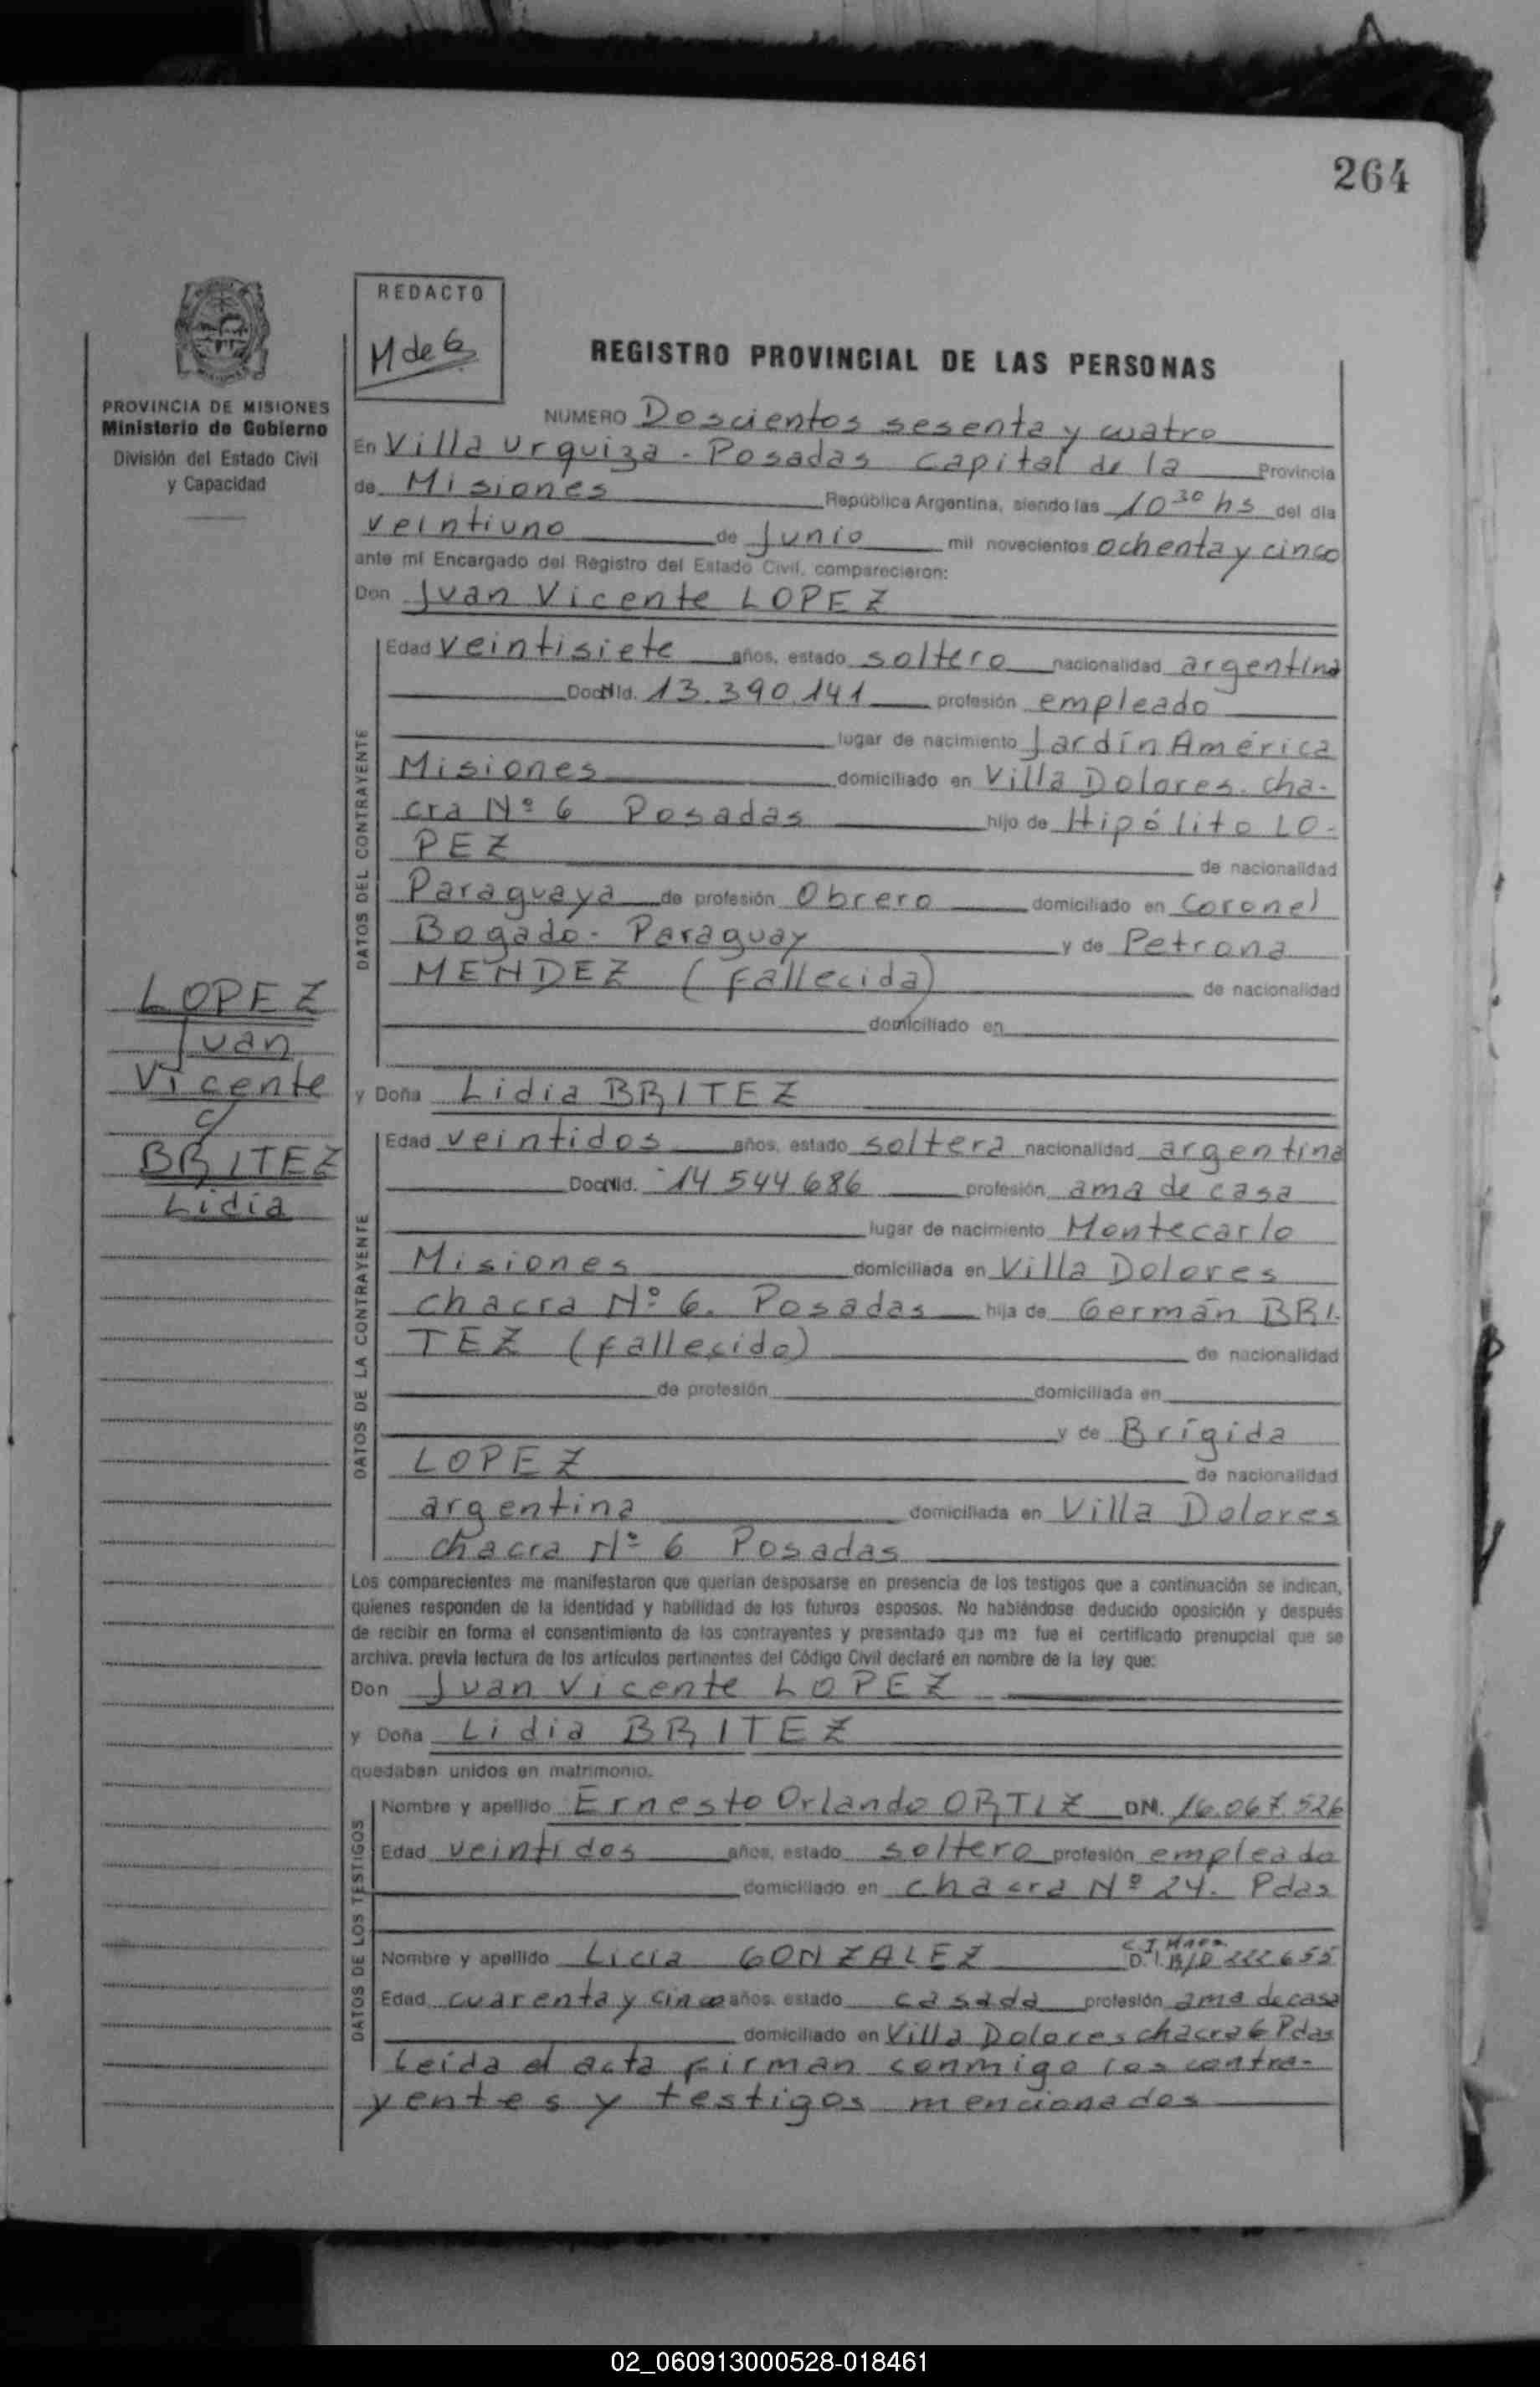 264
REDACTO
M de G
REGISTRO PROVINCIAL DE LAS PERSONAS
PROVINCIA DE MISIONES
Ministerio de Gobierno
División del Estado Civil
y Capacidad
NUMERO Doscientos sesenta y cuatro
En Villa Urquiza - Posadas capital de la Provincia
de Misiones República Argentina, siendo las 10 30 hs del día
veintiuno de Junio mil novecientos ochenta y cinco
ante mí Encargado del Registro del Estado Civil, comparecieron:
Don Juan Vicente LOPEZ
DATOS DEL CONTRAYENTE
Edad veintisiete años, estado soltero nacionalidad argentina
Doc Nld. 13.390.141 profesión empleado
lugar de nacimiento Jardín América
Misiones domiciliado en Villa Dolores. cha-
cra Nº 6 Posadas hijo de Hipólito LO-
PEZ de nacionalidad
Paraguaya de profesión Obrero domiciliado en Coronel
Bogado - Paraguay y de Petrona
MENDEZ (Fallecida) de nacionalidad
domiciliado en
LOPEZ
Juan
Vicente
c/
BRITEZ
Lidia
y Doña Lidia BRITEZ
DATOS DE LA CONTRAYENTE
Edad veintidos años, estado soltera nacionalidad argentina
Doc Nld. 14 544 686 profesión ama de casa
lugar de nacimiento Montecarlo
Misiones domiciliada en Villa Dolores
chacra Nº 6. Posadas hija de Germán BRI-
TEZ (fallecido) de nacionalidad
de profesión domiciliada en
y de Brígida
LOPEZ de nacionalidad
argentina domiciliada en Villa Dolores
chacra Nº 6 Posadas
Los comparecientes me manifestaron que querían desposarse en presencia de los testigos que a continuación se indican,
quienes responden de la identidad y habilidad de los futuros esposos. No habiéndose deducido oposición y después
de recibir en forma el consentimiento de los contrayentes y presentado que me fue el certificado prenupcial que se
archiva, previa lectura de los artículos pertinentes del Código Civil declaré en nombre de la ley que:
Don Juan Vicente LOPEZ
y Doña Lidia BRITEZ
quedaban unidos en matrimonio.
DATOS DE LOS TESTIGOS
Nombre y apellido Ernesto Orlando ORTIZ DN. 16.067.526
Edad veintidos años, estado soltero profesión empleado
domiciliado en chacra Nº 24. Pdas
Nombre y apellido Licia GONZALEZ D.I. 222.655
Edad cuarenta y cinco años, estado casada profesión ama de casa
domiciliado en Villa Dolores chacra 6 Pdas
Leída el acta firman conmigo los contra-
yentes y testigos mencionados
02_060913000528-018461